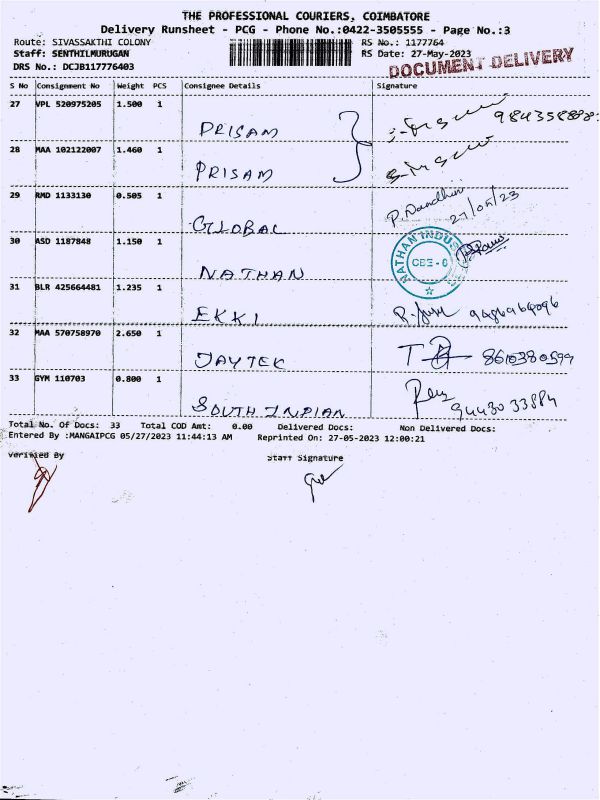 THE PROFESSIONAL COURIERS, COIMBATORE
Delivery Runsheet - PCG - Phone No.:0422-3505555 - Page No.:3
Route: SIVASSAKTHI COLONY RS No.: 1177764
Staff: SENTHILMURUGAN RS Date: 27-May-2023
DRS No.: DCJB117776403 DOCUMENT DELIVERY
S No Consignment No Weight PCS Consignee Details Signature
27 VPL 520975205 1.500 1
PRISAM
28 MAA 102122007 1.460 1
PRISAM
29 RMD 1133130 0.505 1
GLOBAL 27/05/23
30 ASD 1187848 1.150 1
NATHAN NATHAN CBE - 
31 BLR 425664481 1.235 1
EKKI
32 MAA 570758970 2.650 1
JAYTEK
33 GYM 110703 0.800 1
SOUTH INDIAN
Total No. Of Docs: 33 Total COD Amt: 0.00 Delivered Docs: Non Delivered Docs:
Entered By :MANGAIPCG 05/27/2023 11:44:13 AM Reprinted On: 27-05-2023 12:00:21
Verified By Staff Signature